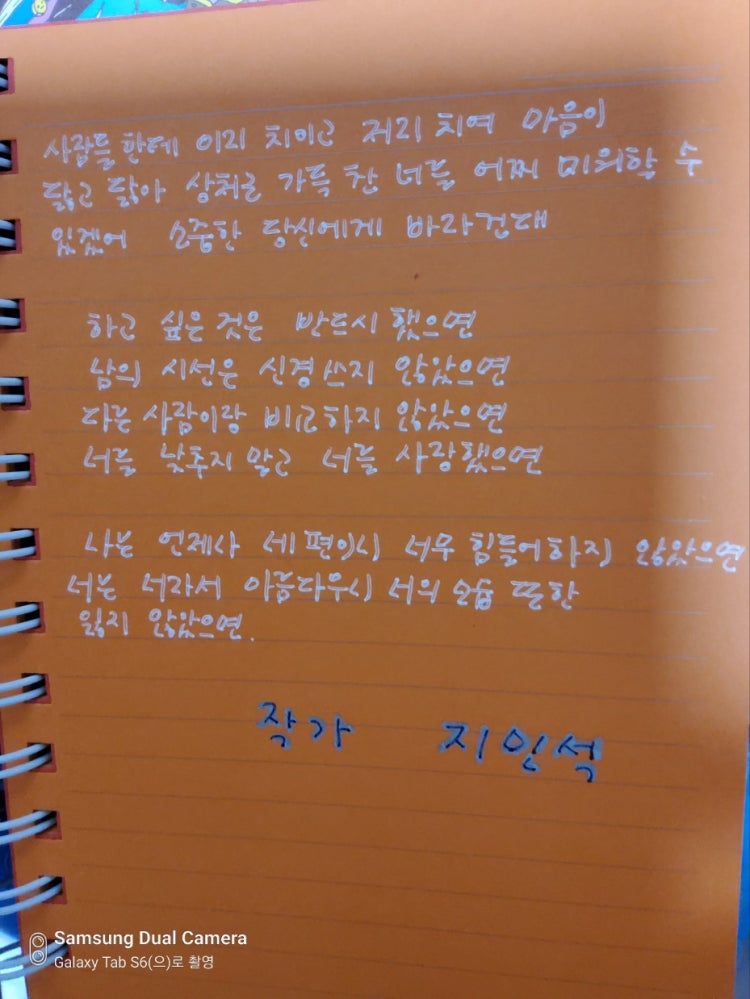 사람들한테 이리 치이고 저리 치여 마음이
닳고 닳아 상처로 가득 찬 너를 어찌 미워할 수
있겠어 소중한 당신에게 바라건대
하고 싶은 것은 반드시 했으면
남의 시선은 신경쓰지 않았으면
다른 사람이랑 비교하지 않았으면
너를 낮추지 말고 너를 사랑했으면
나는 언제나 네 편이니 너무 힘들어하지 않았으면
너는 너라서 아름다우니 너의 모습 또한
잃지 않았으면.
작가 지민석
Samsung Dual Camera
Galaxy Tab S6(으)로 촬영